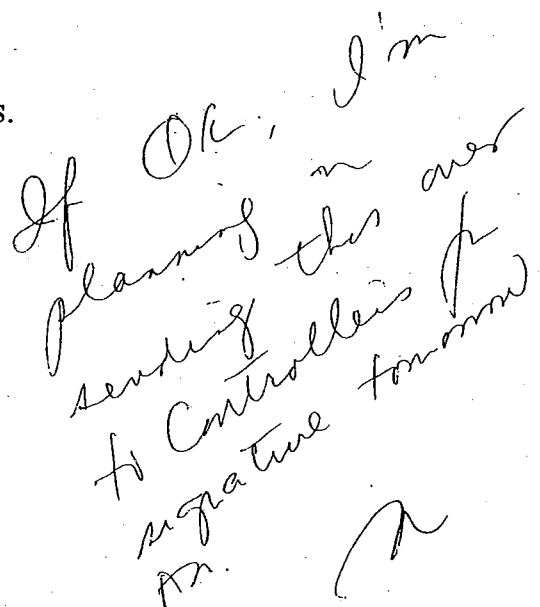 s.
If OK, I'm
planning on
sending this over
to Controllers for
signature tomorrow
PM.